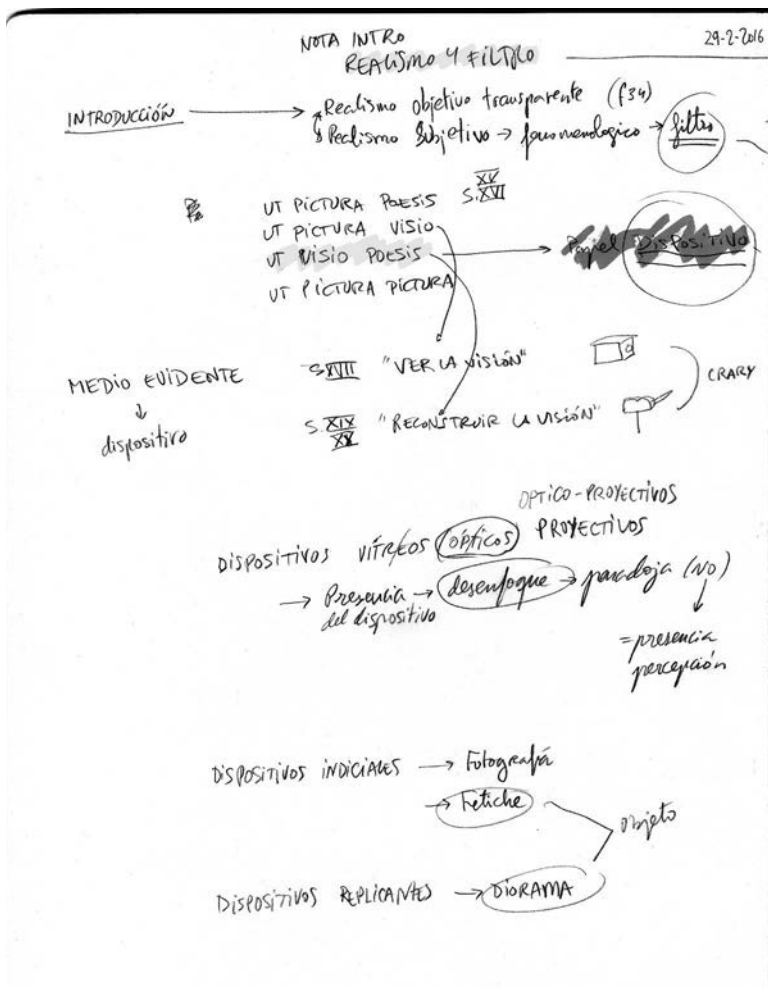 NOTA INTRO 29-2-2016
REALISMO Y FILTRO
INTRODUCCIÓN → Realismo objetivo transparente (f34)
Realismo Subjetivo → fenomenologico → filtro
UT PICTURA POESIS S. XV XVI
UT PICTURA VISIO
UT VISIO POESIS → Papel DISPOSITIVO
UT PICTURA PICTURA
MEDIO EVIDENTE S XVII "VER LA VISIÓN"
CRARY
↓
dispositivo S. XIX XX "RECONSTRUIR LA VISIÓN"
OPTICO-PROYECTIVOS
DISPOSITIVOS VÍTREOS (ópticos) PROYECTIVOS
→ Presencia → desenfoque → paradoja (NO)
del dispositivo
↓
= presencia
percepción
DISPOSITIVOS INDICIALES → Fotografía
→ Fetiche
objeto
DISPOSITIVOS REPLICANTES → DIORAMA